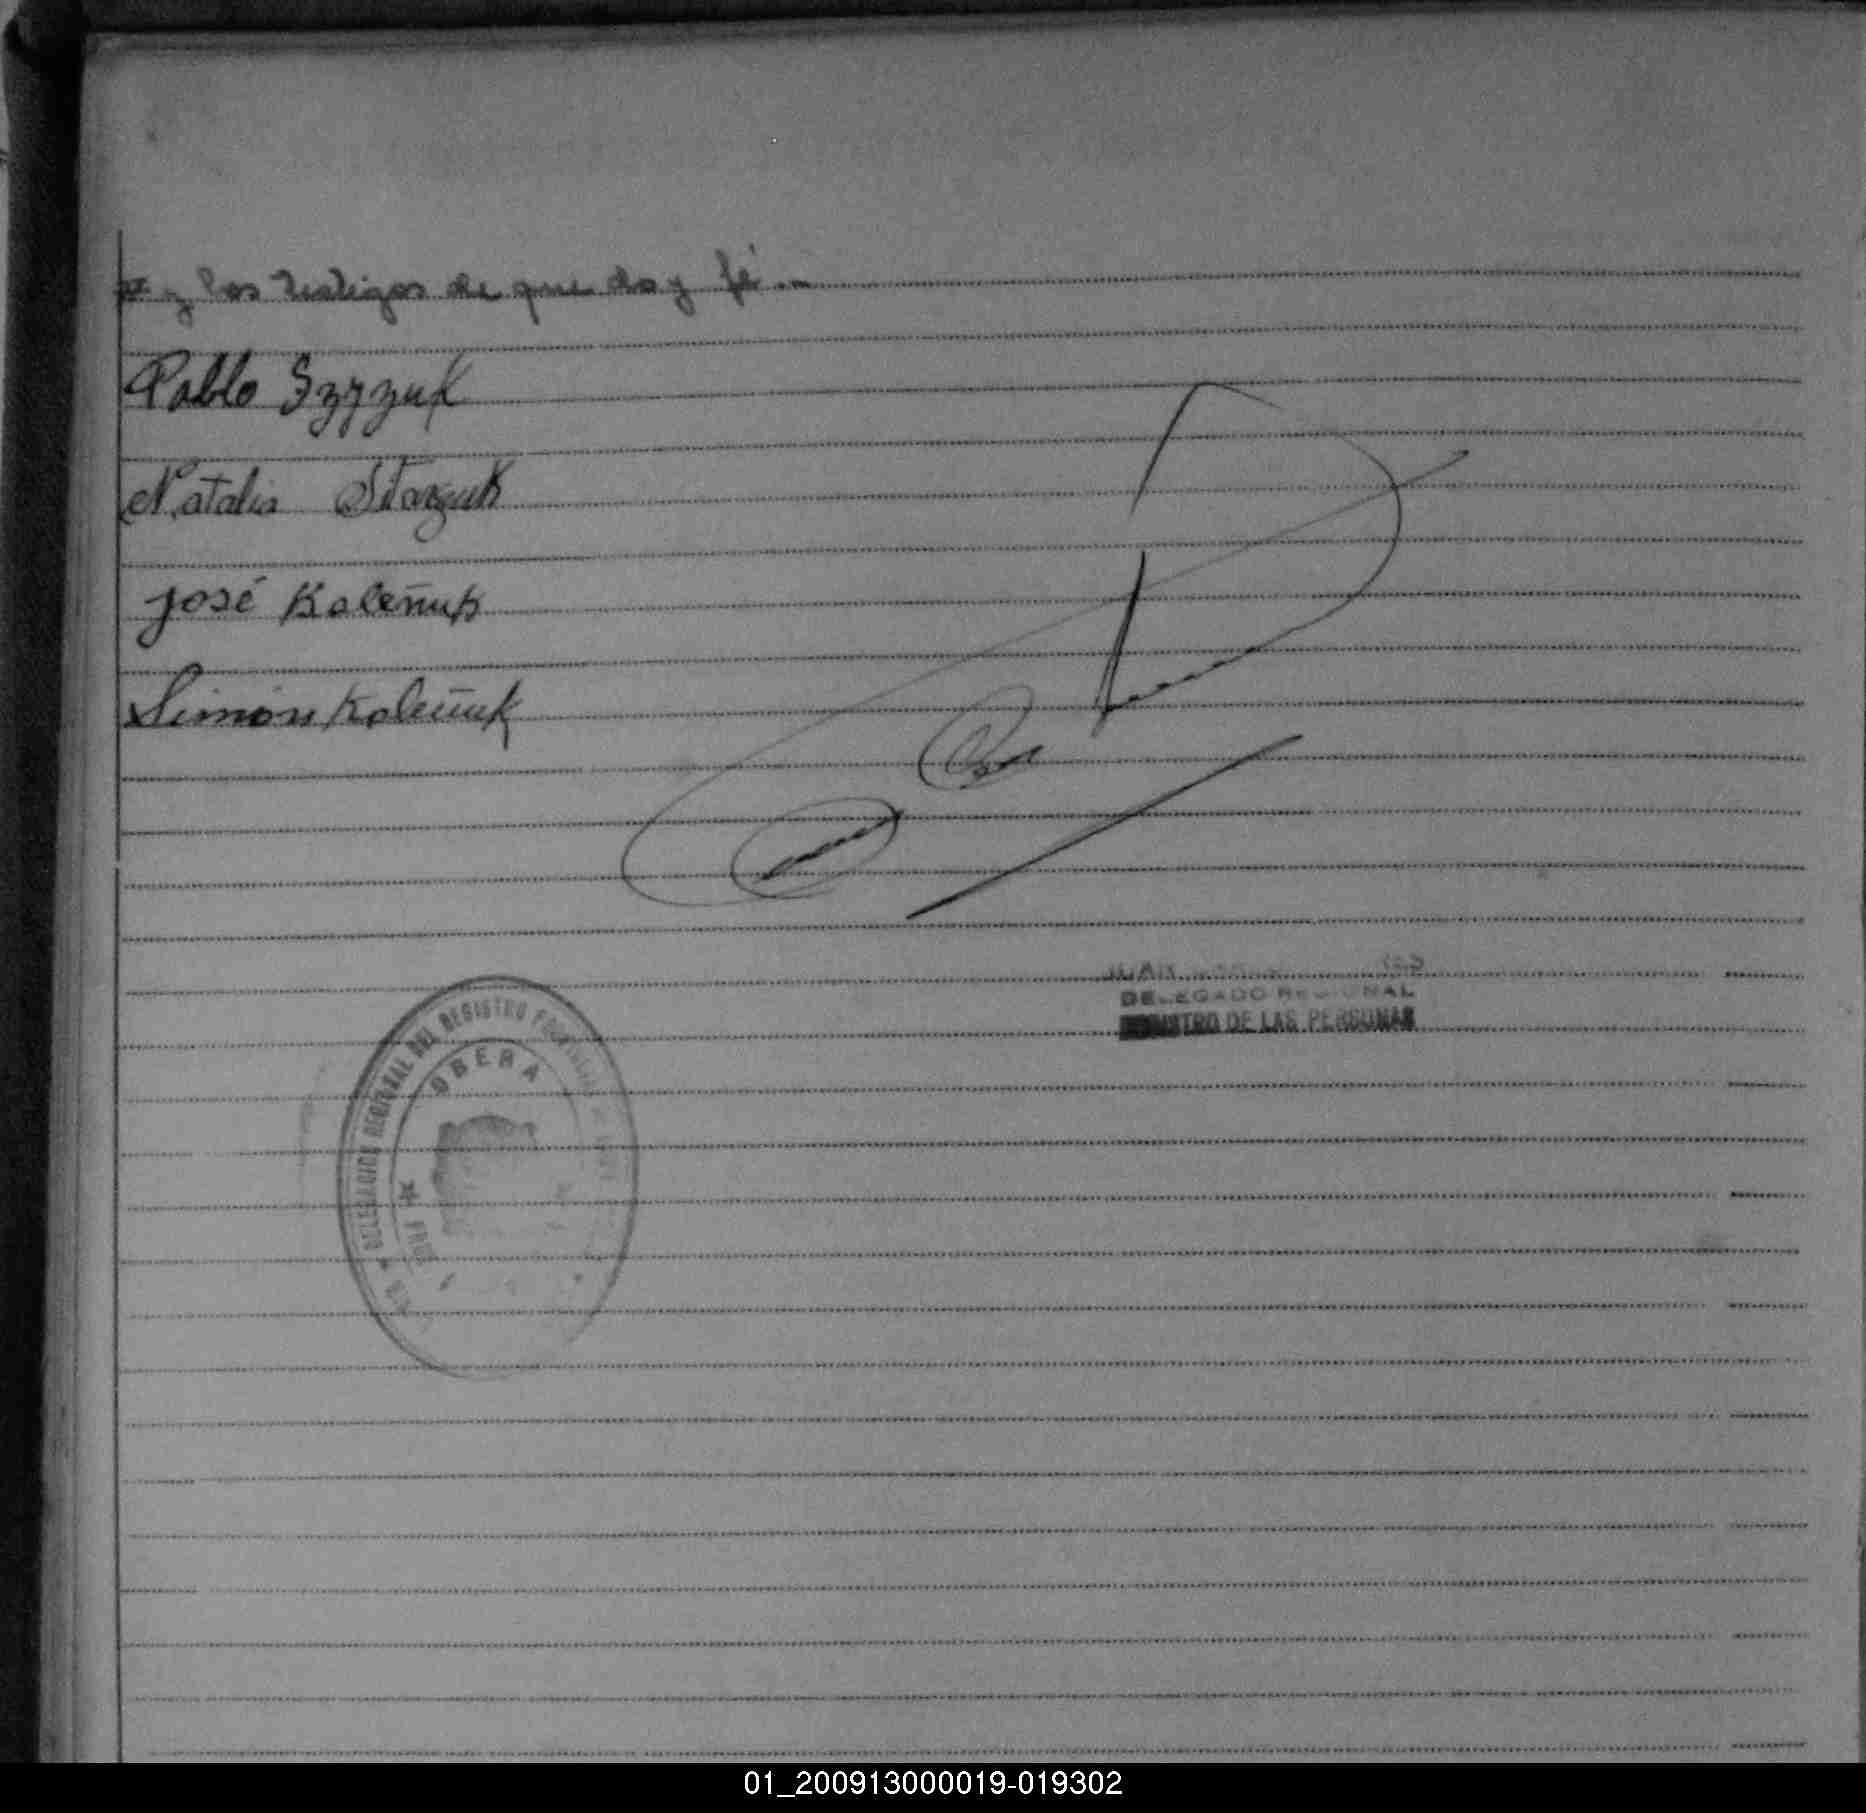 y los testigos de que doy fé.-
Pablo Szyzuk
Natalia Starzuk
José Koleñuk
Simón Koleñuk
JUAN
DELEGADO REGIONAL
REGISTRO DE LAS PERSONAS
DELEGACION REGIONAL DEL REGISTRO
OBERA
01_200913000019-019302